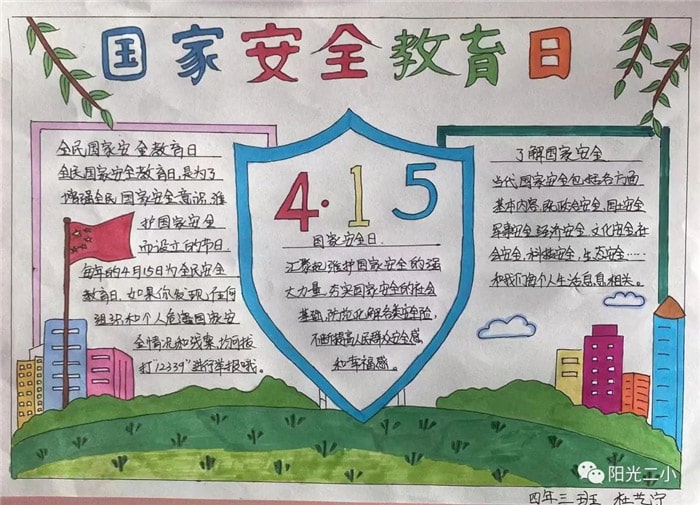 国家安全教育日
全民国家安全教育日
全民国家安全教育日,是为了
增强全民国家安全意识,维
护国家安全
而设立的节日.
每年的4月15日为全民安全
教育日.如果你发现,任何
组织和个人危害国家安
全情况和线索,均可拨
打"12339"进行举报哦。
4·15
国家安全日.
汇聚起维护国家安全的强
大力量,夯实国家安全的社会
基础,防范化解各类安全险,
不断提高人民群众安全感
和幸福感。
了解国家安全
当代国家安全包括各方面
基本内容,既政治安全,国土安全
军事安全,经济安全,文化安全,社
会安全,科技安全,生态安全……
和我们每个人生活息息相关。
阳光二小
四年三班 杜艺宁